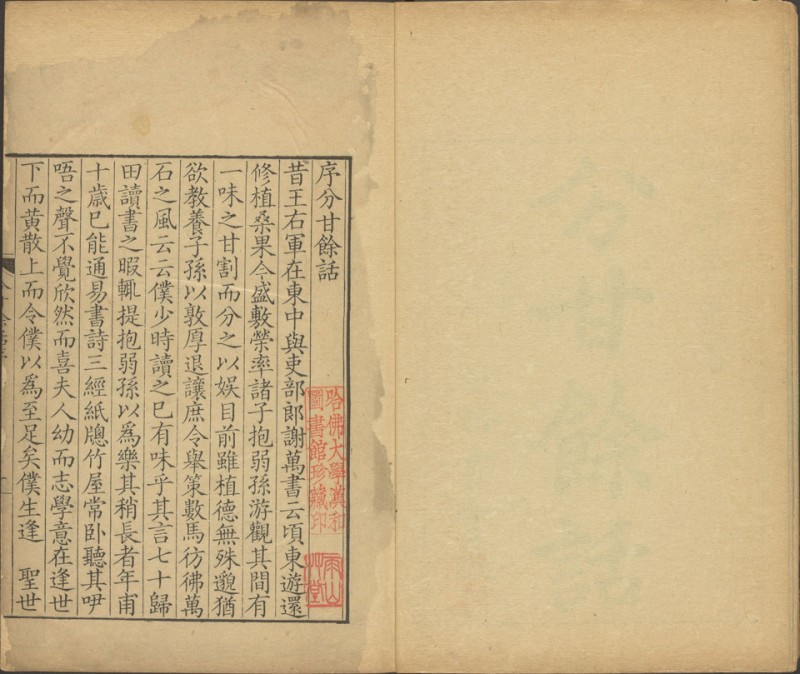 序分甘餘話
昔王右軍在東中與吏部郎謝萬書云頃東遊還
修植桑果今盛敷榮率諸子抱弱孫游觀其間有
一味之甘割而分之以娛目前雖植德無殊邈猶
欲教養子孫以敦厚退讓庶令舉策數馬彷彿萬
石之風云云僕少時讀之巳有味乎其言七十歸
田讀書之暇輙提抱弱孫以爲樂其稍長者年甫
十歲巳能通易書詩三經紙牕竹屋常卧聽其吚
唔之聲不覺欣然而喜夫人幼而志學意在逢世
下而黄散上而令僕以爲至足矣僕生逢　聖世
哈佛大學漢和
圖書館珍藏印